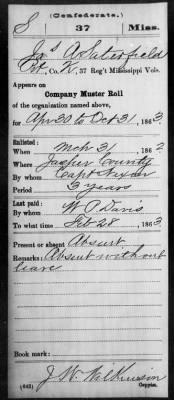 (Confederate.)
S 37 Miss.
Jas A Saterfield
Pvt, Co. K, 37 Reg't Mississippi Vols.
Appears on
Company Muster Roll
of the organization named above,
for Apr 30 to Oct 31, 1863.
Enlisted:
When Mch 31, 1862
Where Jasper County
By whom Capt
Period 3 years
Last paid:
By whom W. P. Davis
To what time Feb 28, 1863.
Present or absent Absent
Remarks: Absent without
leave
Book mark:
J. W. Wilkinson
(642) Copyist.